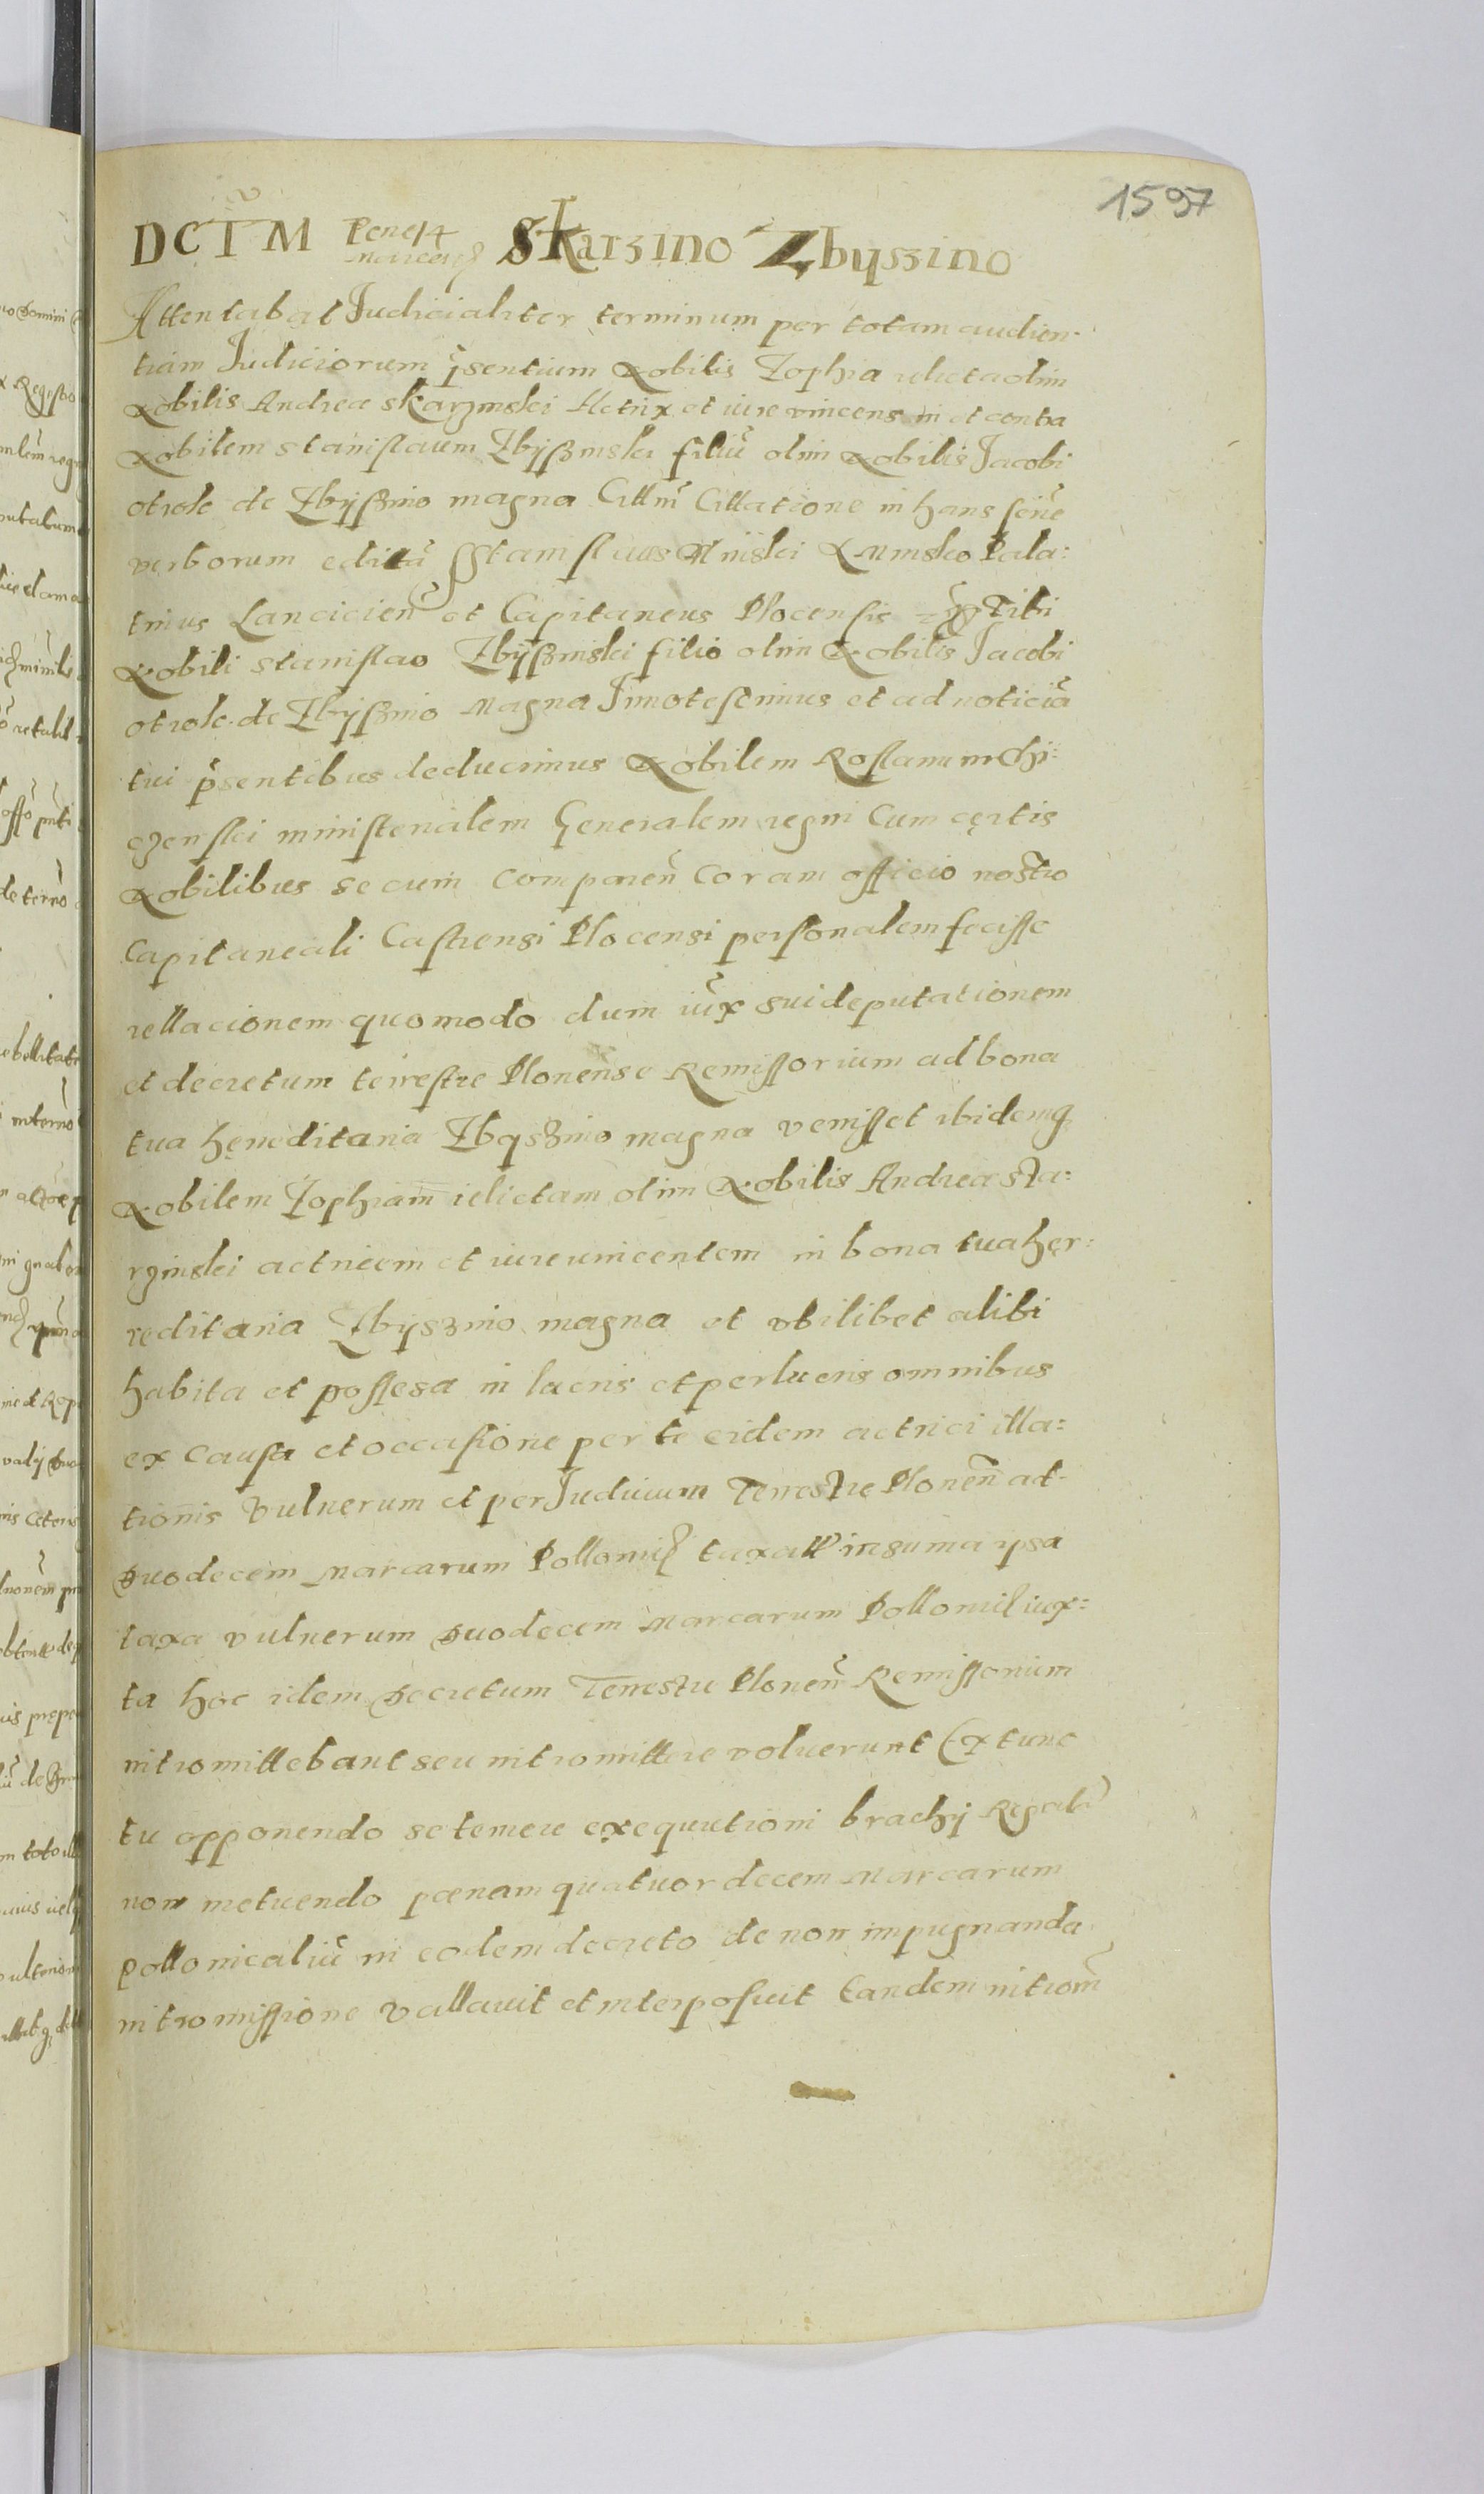 1597
DCTM Pene 14 marcarum Skarzino Zbyszino
Attentabat Judicialiter terminum per totam audien-
tiam Judiciorum p̃sentium Nobilis Zophia relicta olim
Nobilis Andreæ Skarzinski Actrix et iure vincens in et contra
Nobilem Stanislaum Zbyszinski filiũ olim Nobilis Jacobi
otrok de Zbyszino magna Cittm̃ Cittatione in hanc seriẽ
verborum edittã Stanislaus Minski de Minsko Pala:
tinus Lancicieñ et Capitaneus Plocensis Tibi
Nobili Stanislao Zbyszinski filio olim Nobilis Jacobi
otrok de Zbyszino Magna Innotescimus et ad noticiã
tui p̃sentibus deducimus Nobilem Roslanum Chi:
czenski ministerialem Generalem regni Cum certis
Nobilibus secum Compareñ Coram officio nostro
Capitaneali Castrensi Plocensi personalem fecisse
rellacionem quomodo dum iũx sui deputationem
et decretum terrestre Plonense Remissorium ad bona
tua hęreditaria Zbyszino magna venisset ibidemq
Nobilem Zophiam relictam olim Nobilis Andreæ Ska:
rzinski actricem et iure vincentem in bona tua hęr:
reditaria Zbyszino magna et vbilibet alibi
habita et possesa in lucris et per lucris omnibus
ex Causa et occasione per te eidem actrici illa:
tionis vulnerum et per Judicium Terrestre Plonen̄ ad
Duodecem Marcarum Pollonic taxatt in suma ipsa
taxa vulnerum Duodecem Marcarum Pollonic iux:
ta hoc idem Decretum Terrestre Plonen̄ Remissorium
intromittebant seu intromittere voluerunt Extunc
tu opponendo se temere exequutioni brachij Regali
non metuendo pœnam quatuordecem Marcarum
pollonicaliũ in eodem decreto de non impugnanda
intromissione vallavit et interposuit Eandem introm̃